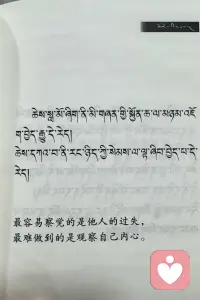 ཆེས་སླ་མོ་ཞིག་ནི་མི་གཞན་གྱི་སྐྱོན་ཆ་ལ་མཉམ་འཇོ
ག་བྱེད་རྒྱུ་དེ་རེད།
ཆེས་དཀའ་བ་ནི་རང་ཉིད་ཀྱི་སེམས་ལ་ལྟ་ཞིབ་བྱེད་པ་དེ་
རེད།
最容易察觉的是他人的过失，
最难做到的是观察自己内心。